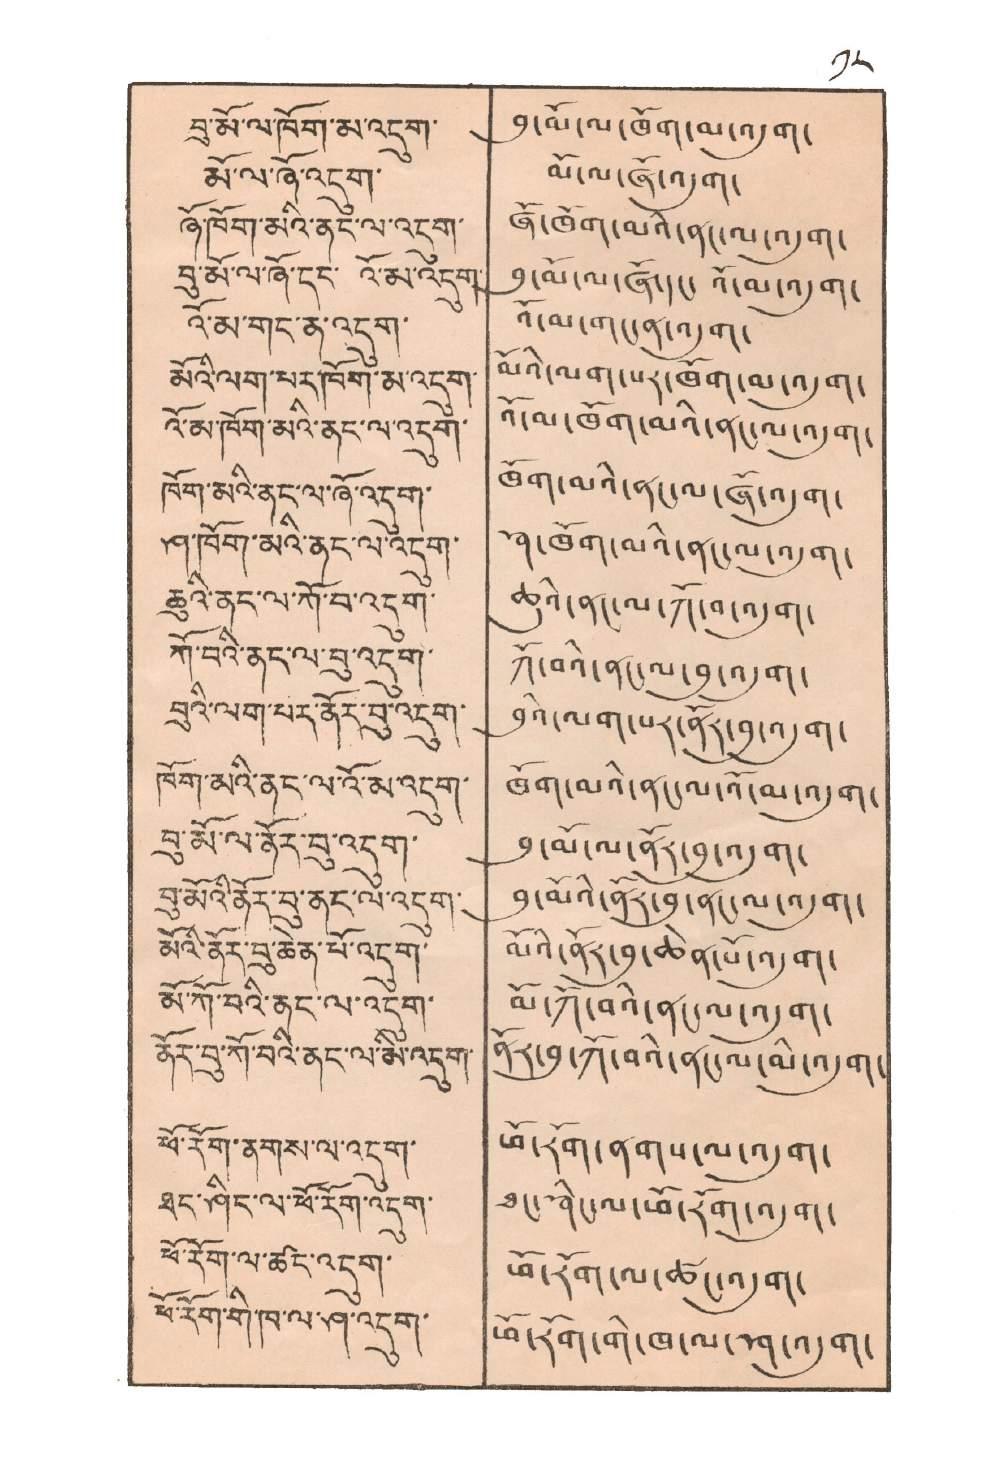 ༡༨
བུ་མོ་ལ་ཁོག་མ་འདུག་
མོ་ལ་ཞོ་འདུག་
ཞོ་ཁོག་མའི་ནང་ལ་འདུག་
བུ་མོ་ལ་ཞོ་དང་ འོ་མ་འདུག་
འོ་མ་གང་ན་འདུག་
མོའི་ལག་པར་ཁོག་མ་འདུག་
འོ་མ་ཁོག་མའི་ནང་ལ་འདུག་
ཁོག་མའི་ནང་ལ་ཞོ་འདུག་
ཤ་ཁོག་མའི་ནང་ལ་འདུག་
ཆུའི་ནང་ལ་ཀོ་བ་འདུག་
ཀོ་བའི་ནང་ལ་བུ་འདུག་
བུའི་ལག་པར་ནོར་བུ་འདུག་
ཁོག་མའི་ནང་ལ་འོ་མ་འདུག་
བུ་མོ་ལ་ནོར་བུ་འདུག་
བུ་མོའི་ནོར་བུ་ནང་ལ་འདུག་
མོའི་ནོར་བུ་ཆེན་པོ་འདུག་
མོ་ཀོ་བའི་ནང་ལ་འདུག་
ནོར་བུ་ཀོ་བའི་ནང་ལ་མི་འདུག་
ཕོ་རོག་ནགས་ལ་འདུག་
ཐང་ཤིང་ལ་ཕོ་རོག་འདུག་
ཕོ་རོག་ལ་ཚང་འདུག་
ཕོ་རོག་གི་ཁ་ལ་ཤ་འདུག་
བུ་མོ་ལ་ཁོག་མ་འདུག་
མོ་ལ་ཞོ་འདུག་
ཞོ་ཁོག་མའི་ནང་ལ་འདུག་
བུ་མོ་ལ་ཞོ་དང་ འོ་མ་འདུག་
འོ་མ་གང་ན་འདུག་
མོའི་ལག་པར་ཁོག་མ་འདུག་
འོ་མ་ཁོག་མའི་ནང་ལ་འདུག་
ཁོག་མའི་ནང་ལ་ཞོ་འདུག་
ཤ་ཁོག་མའི་ནང་ལ་འདུག་
ཆུའི་ནང་ལ་ཀོ་བ་འདུག་
ཀོ་བའི་ནང་ལ་བུ་འདུག་
བུའི་ལག་པར་ནོར་བུ་འདུག་
ཁོག་མའི་ནང་ལ་འོ་མ་འདུག་
བུ་མོ་ལ་ནོར་བུ་འདུག་
བུ་མོའི་ནོར་བུ་ནང་ལ་འདུག་
མོའི་ནོར་བུ་ཆེན་པོ་འདུག་
མོ་ཀོ་བའི་ནང་ལ་འདུག་
ནོར་བུ་ཀོ་བའི་ནང་ལ་མི་འདུག་
ཕོ་རོག་ནགས་ལ་འདུག་
ཐང་ཤིང་ལ་ཕོ་རོག་འདུག་
ཕོ་རོག་ལ་ཚང་འདུག་
ཕོ་རོག་གི་ཁ་ལ་ཤ་འདུག་